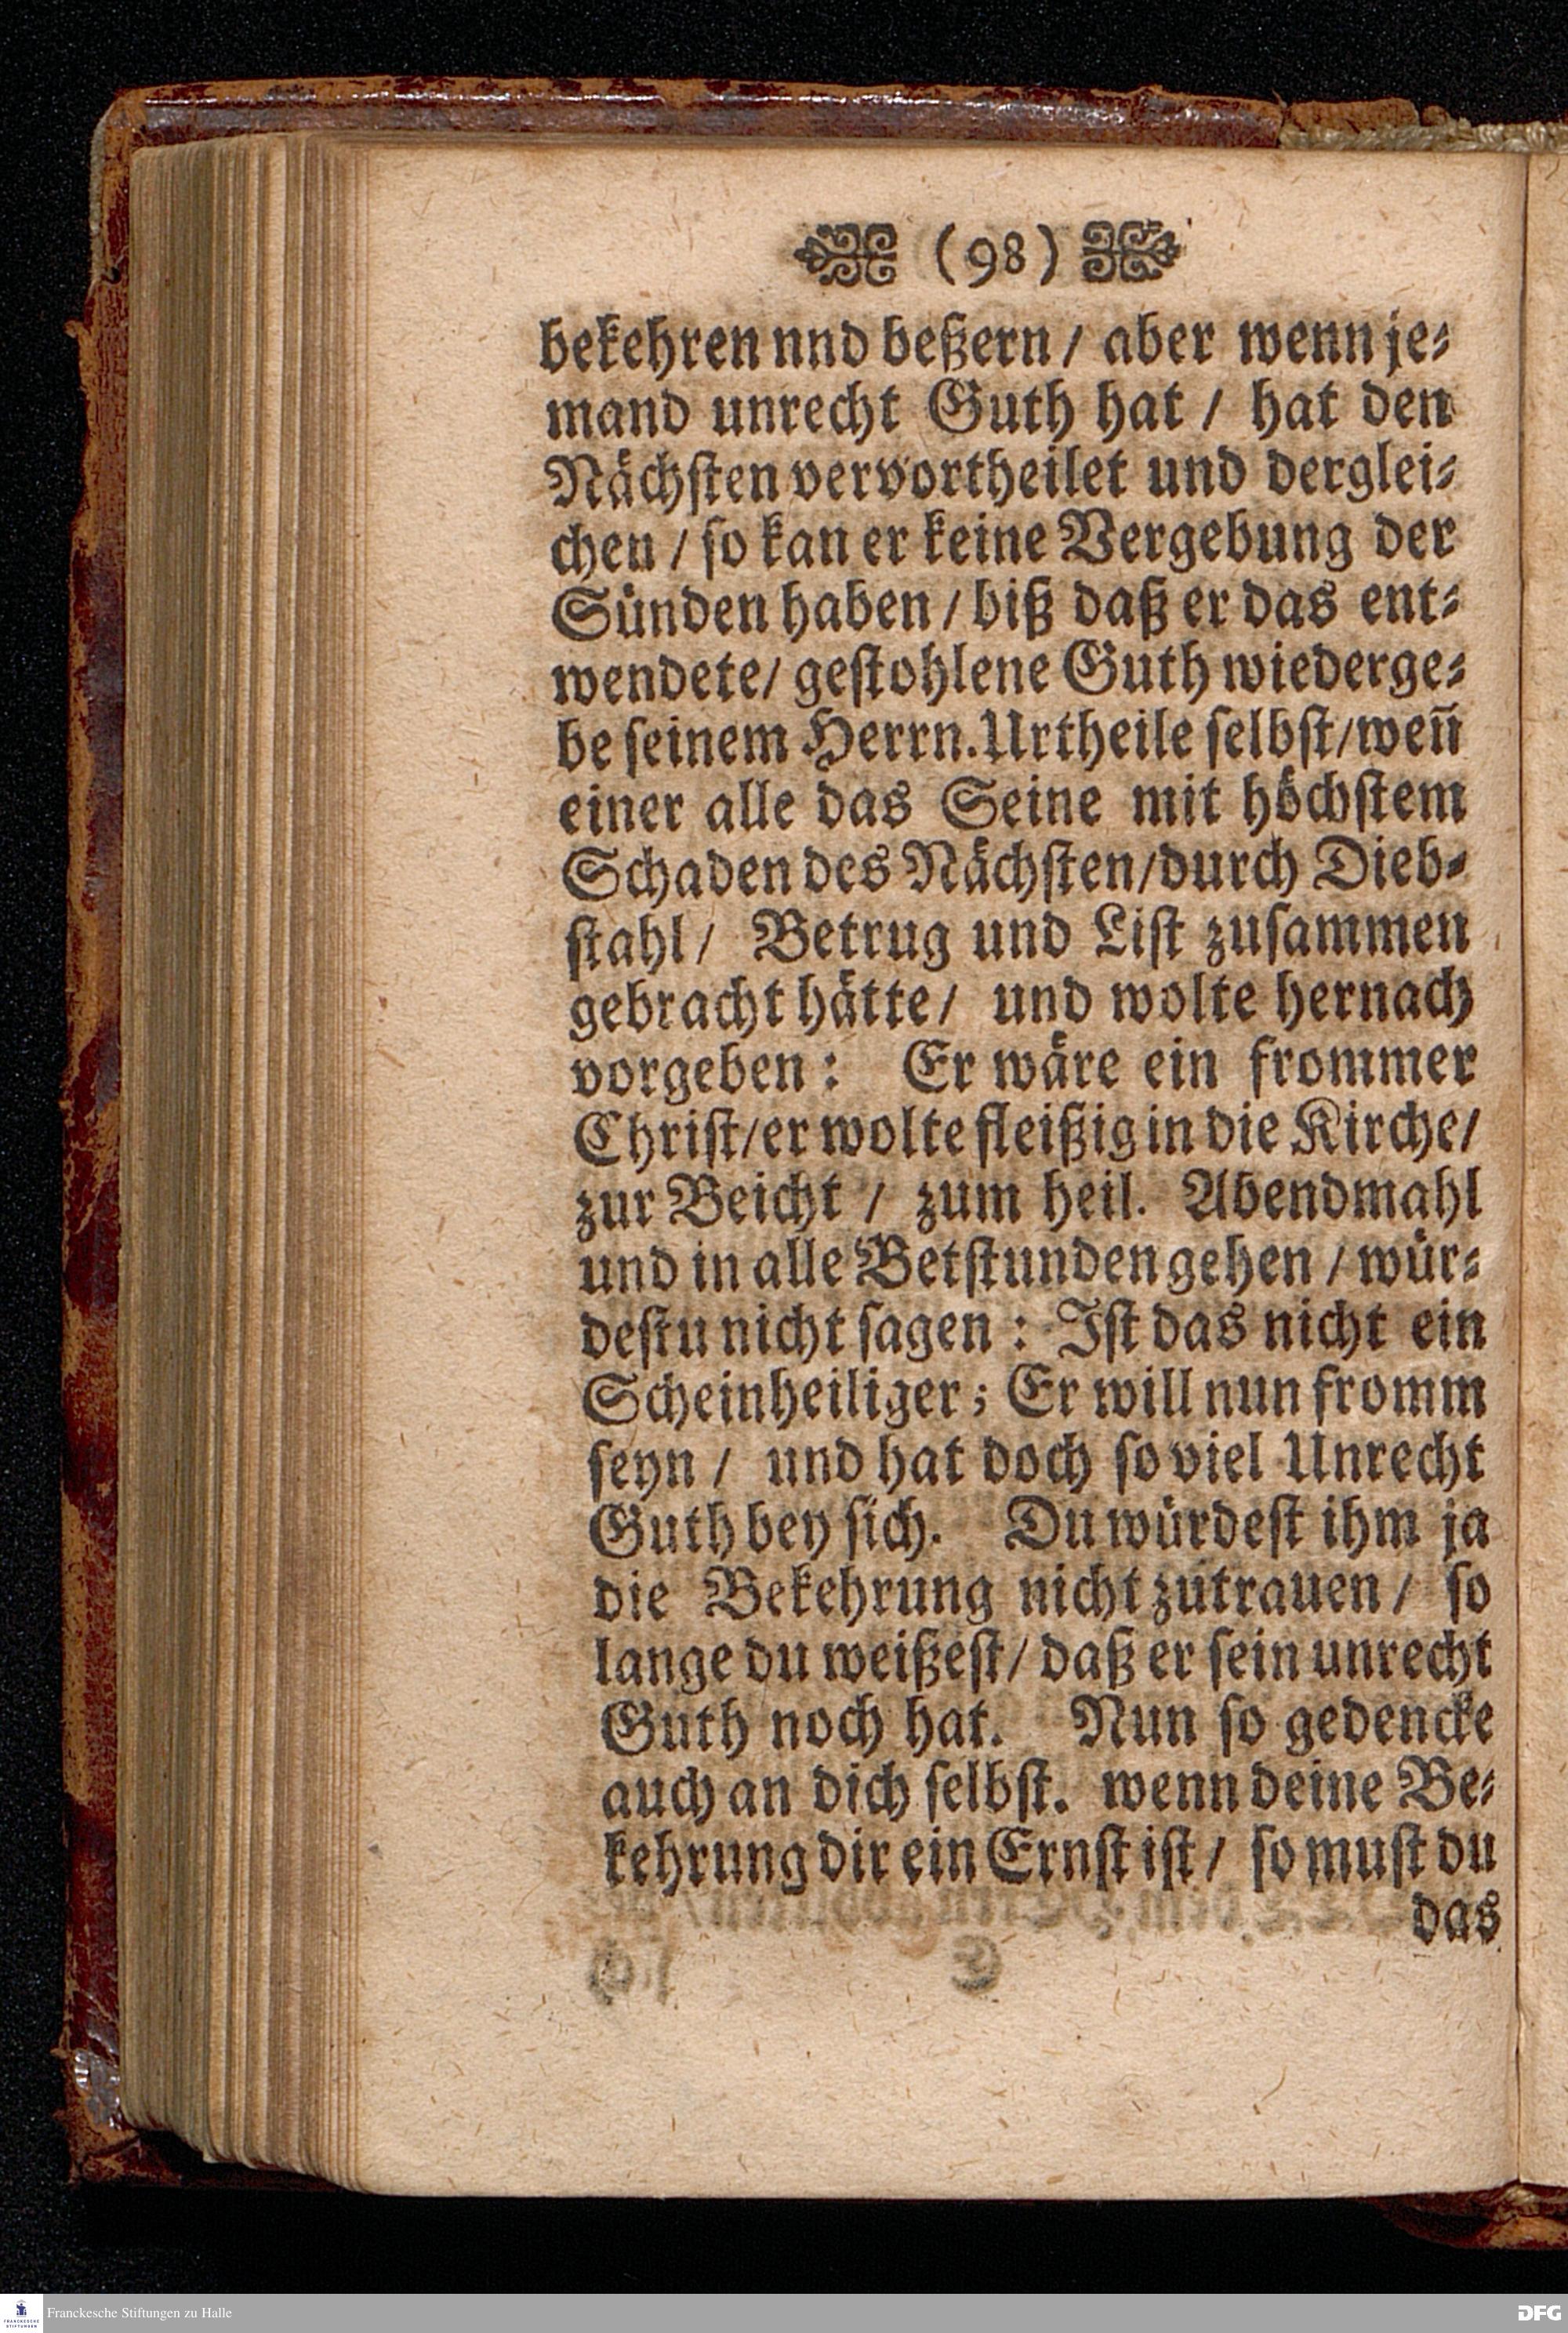 (98)
bekehren nnd beßern / aber wenn je⸗
mand unrecht Guth hat / hat den
Nächſten vervortheilet und derglei⸗
chen / ſo kan er keine Vergebung der
Sünden haben / biß daß er das ent⸗
wendete / geſtohlene Guth wiederge⸗
be ſeinem Herrn. Urtheile ſelbſt / weñ
einer alle das Seine mit höchſtem
Schaden des Nächſten / durch Dieb⸗
ſtahl / Betrug und Liſt zuſammen
gebracht hätte / und wolte hernach
vorgeben : Er wäre ein frommer
Chriſt / er wolte fleißig in die Kirche /
zur Beicht / zum heil. Abendmahl
und in alle Betſtunden gehen / wür⸗
deſtu nicht ſagen : Iſt das nicht ein
Scheinheiliger ; Er will nun fromm
ſeyn / und hat doch ſo viel Unrecht
Guth bey ſich. Du würdeſt ihm ja
die Bekehrung nicht zutrauen / ſo
lange du weißeſt / daß er ſein unrecht
Guth noch hat. Nun ſo gedencke
auch an dich ſelbſt. wenn deine Be⸗
kehrung dir ein Ernſt iſt / ſo muſt du
das
Franckesche Stiftungen zu Halle
DFG